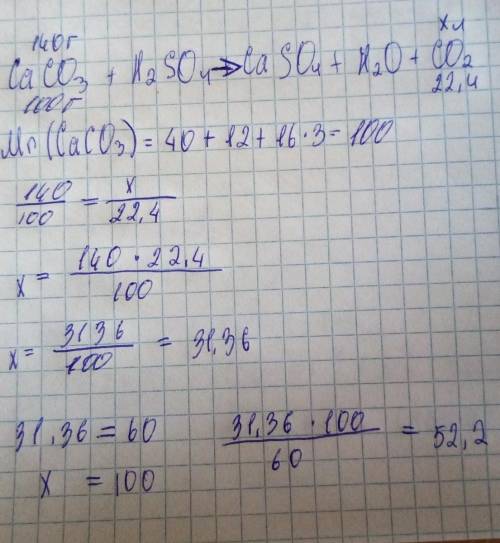 140г хл
CaCO3 + H2SO4 → CaSO4 + H2O + CO2
100г 22,4
Mr (CaCO3) = 40 + 12 + 16 · 3 = 100
140/100 = x/22,4
x = 140 · 22,4/100
x = 3136/100 = 31,36
31,36 = 60 31,36 · 100/60 = 52,2
x = 100